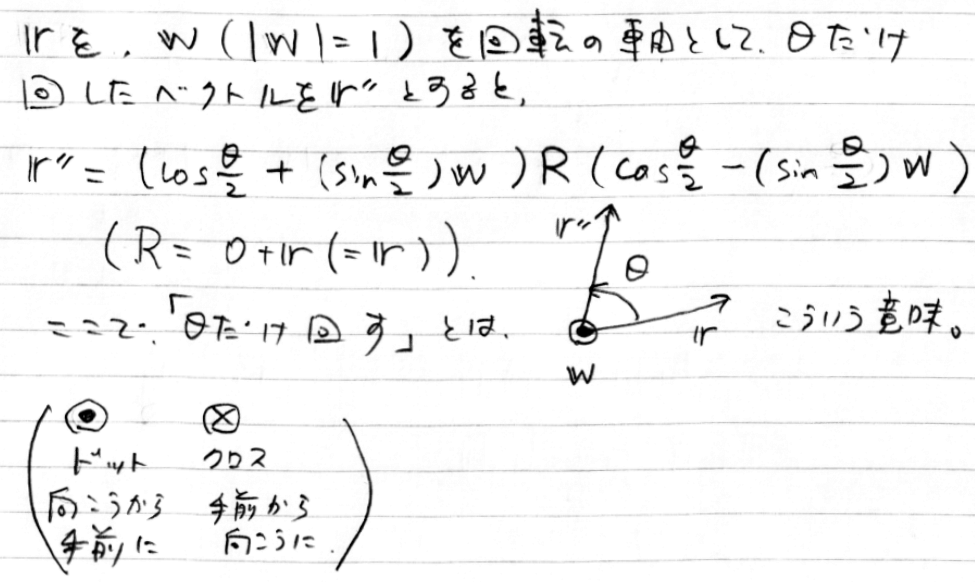 𝕣を、𝕨(|𝕨|=1)を回転の軸として、θだけ
回したベクトルを𝕣″とすると、
𝕣″=(cos θ/2 + (sin θ/2)𝕨)R(cos θ/2 -(sin θ/2)𝕨)
(R= 0+𝕣(=𝕣)).
ここで、「θだけ回す」とは、
𝕣″
θ
𝕣
𝕨
こういう意味。
⊙ ⊗
ドット クロス
向こうから 手前から
手前に 向こうに.